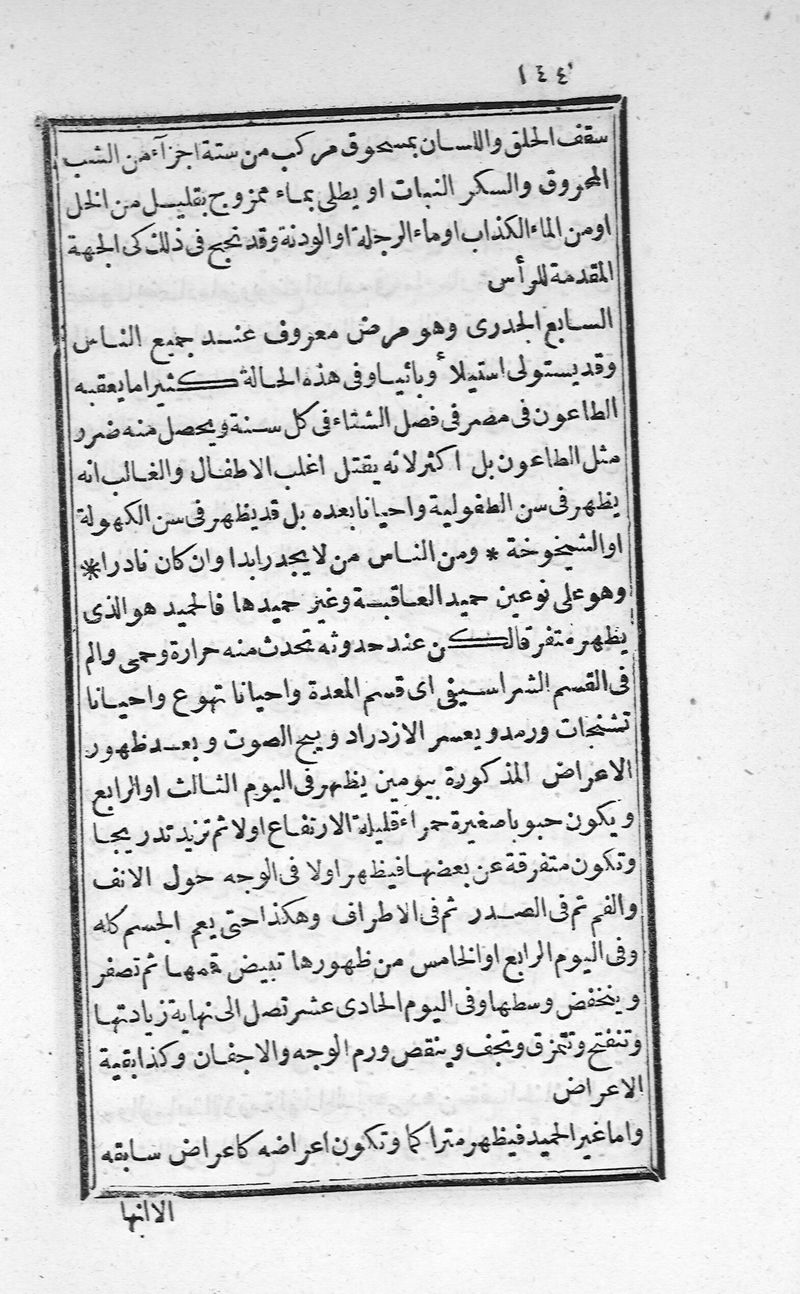 ١٤٤
سقف الحلق واللسان بمسحوق مركب من ستة اجزآء من الشب
المحروق والسكر النبات او يطلى بماء ممزوج بقليل من الخل
او من الماء الكذاب او ماء الرجلة او الودنة وقد نجح فى ذلك كى الجهة
المقدمة للرأس
السابع الجدرى وهو مرض معروف عند جميع الناس
وقد يستولى استيلاء وبائيا وفى هذه الحالة كثيرا ما يعقبه
الطاعون فى مصر فى فصل الشتاء فى كل سنة ويحصل منه ضرر
مثل الطاعون بل اكثر لانه يقتل اغلب الاطفال والغالب انه
يظهر فى سن الطفولية واحيانا بعده بل قد يظهر فى سن الكهولة
او الشيخوخة * ومن الناس من لا يجدر ابدا وان كان نادرا *
وهو على نوعين حميد العاقبة وغير حميدها فالحميد هو الذى
يظهر متفرقا لكن عند حدوثه تحدث منه حرارة وحمى والم
فى القسم الشراسيفى اى قسم المعدة واحيانا تهوع واحيانا
تشنجات ورمد ويعسر الازدراد ويبح الصوت وبعد ظهور
الاعراض المذكورة بيومين يظهر فى اليوم الثالث او الرابع
ويكون حبوبا صغيرة حمراء قليلة الارتفاع اولا ثم تزيد تدريجا
وتكون متفرقة عن بعضها فيظهر اولا فى الوجه حول الانف
والفم ثم فى الصدر ثم فى الاطراف وهكذا حتى يعم الجسم كله
وفى اليوم الرابع او الخامس من ظهورها تبيض قمها ثم تصفر
وينخفض وسطها وفى اليوم الحادى عشر تصل الى نهاية زيادتها
وتنفتح وتتمزق وتجف وينقص ورم الوجه والاجفان وكذا بقية
الاعراض
واما غير الحميد فيظهر متراكما وتكون اعراضه كاعراض سابقه
الا انها